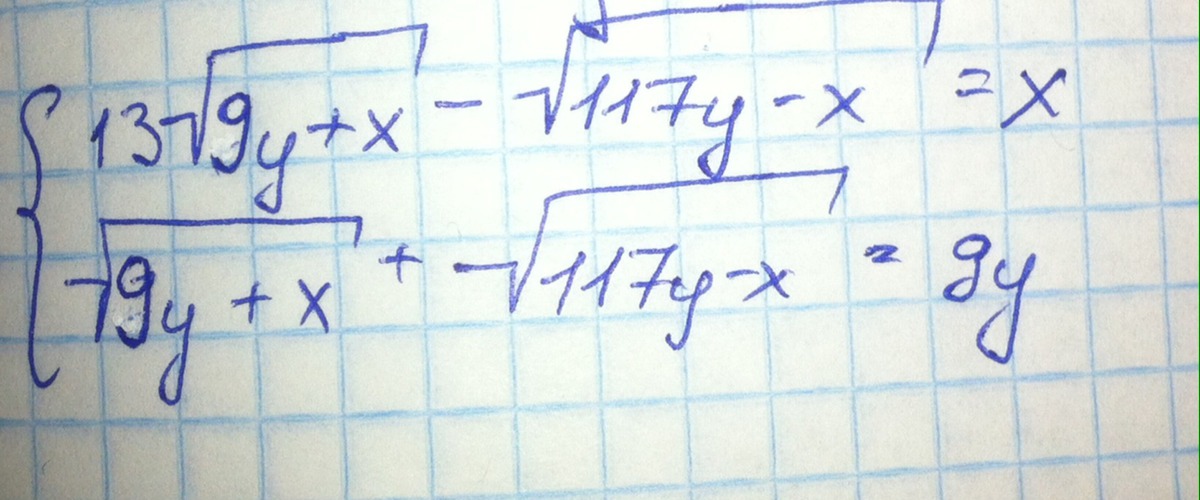 { 13√(9y+x) - √(117y-x) = x
√(9y+x) + √(117y-x) = 9y